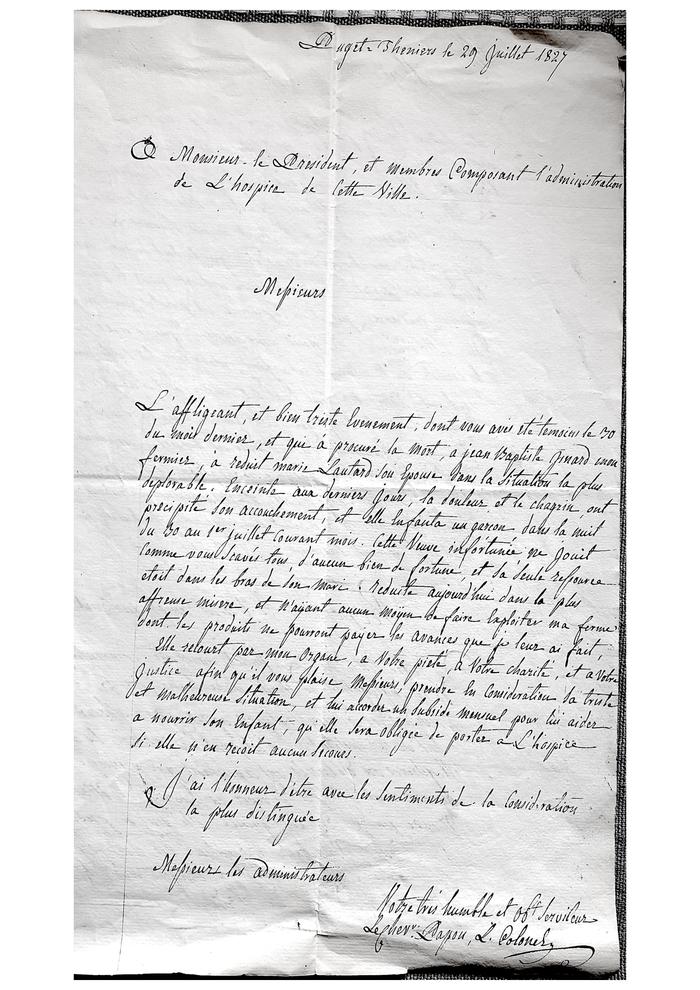 Puget-Theniers le 29 juillet 1827
A Monsieur le President, et membres Composant l'administration
de L'hospice de Cette Ville.
Messieurs
L'affligeant, et bien triste Evenement, dont vous avés été temoins le 30
du mois dernier, et qui à procuré la mort, a jean Baptiste Ginard mon
fermier, à reduit marie Lautard son Epouse dans la Situation la plus
deplorable. Enceinte aux derniers jours, la douleur et le chagrin, ont
precipité son accouchement, et elle Enfanta un garcon dans la nuit
du 30 au 1er juillet courant mois. Cette Veuve infortunée ne jouit
comme vous scavés tous, d'aucun bien de fortune, et sa seule ressource
etoit dans les bras de son mari. reduite aujourd'hui dans la plus
affreuse misere, et n'ayant aucun moyen de faire Exploiter ma ferme
dont les produits ne pourront payer les avances que je leur ai fait,
Elle recourt par mon Organe, a Votre pieté, a Votre charité, et a Votre
justice afin qu'il vous plaise Messieurs, prendre En Consideration sa triste
et malheureuse Situation, et lui accorder un subside mensuel pour lui aider
a nourrir son Enfant, qu'elle sera obligée de porter a L'hospice
si elle n'en recoit aucun secours.
J'ai l'honneur d'être avec les Sentiments de la Consideration
la plus distinguée
Messieurs les administrateurs
Votre très humble et obt Serviteur
Le chevr. Papou, L. Colonel